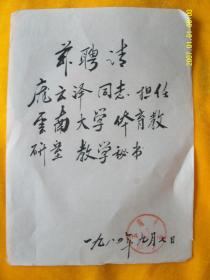 兹聘请
庞云泽同志担任
云南大学体育教
研室教学秘书
一九八〇年九月七日
2007.01.04